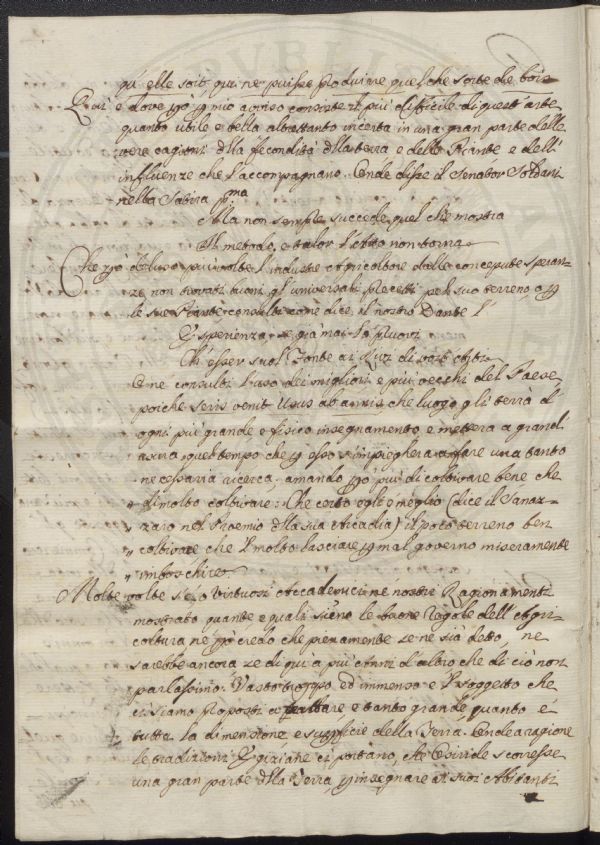 qu'elle soit, qui ne possa produrre quel che sorte de
Quì è dove p mio avviso consiste il più difficile di quest'arte
quanto utile e bella altrettanto incerta in una gran parte delle
vere cagioni dlla fecondità dlla terra e delle Piante e dell'
influenze che l'accompagnano. Onde disse il Senator Soldani
nella Satira pma
Ma non sempre succede quel che mostra
Il metodo, e talor l'effetto non torna
Che però deluso più volte l'industre Agricoltore dalle concepute speran-
ze non trovati buoni gl'universali precetti pel suo terreno o p
le sue Piante consulti come dice il nostro Dante l'
Esperienza, se già mai la pruovi
Ch'esser suol Fonte ai Rivi di vostr'Arti
E ne consulti l'uso dei migliori e più vecchi del Paese
poiche seris venit Usus ab annis che luogo gli terrà d'
ogni più grande e fisico insegnamento e metterà a grand'
usura quel tempo che p esso s'impiegherà a fare una tanto
necessaria ricerca, amando però più di coltivare bene che
di molto coltivare: Che certo egli è meglio (dice il Sanaz-
zaro nel Proemio dlla sua Arcadia) il poco terreno ben
coltivare che 'l molto lasciare p mal governo miseramente
imboschire.
Molte volte si è o Virtuosi Accademici ne nostri Ragionamenti
mostrato quante e quali sieno le buone regole dell'Agri-
coltura, ne però credo che pienamente se ne sia detto, ne
sarebbe ancora se di qui a più Anni d'altro che di ciò non
parlassimo. Vasto troppo, ed immenso è l' soggetto che
ci siamo proposti a trattare e tanto grande quanto è
tutta la dimensione e superficie della Terra. Onde a ragione
le tradizioni Egiziane ci portano, che Osiride scorresse
una gran parte dlla Terra p insegnare ai suoi Abitanti